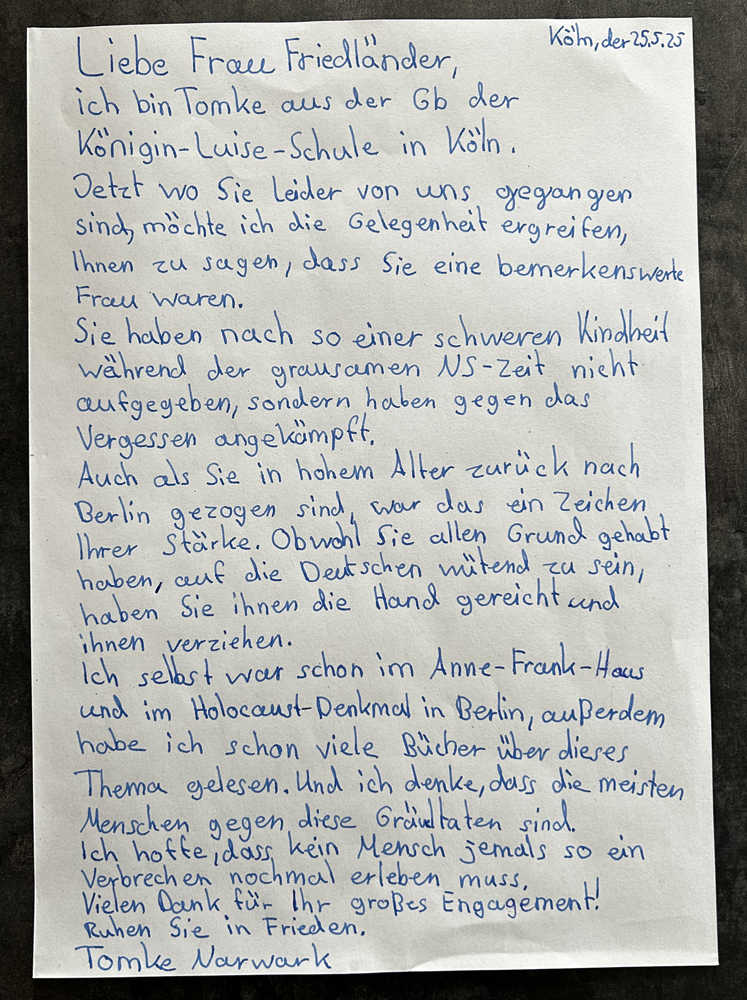 Köln, der 25.5.25
Liebe Frau Friedländer,
ich bin Tomke aus der 6b der
Königin-Luise-Schule in Köln.
Jetzt wo Sie leider von uns gegangen
sind, möchte ich die Gelegenheit ergreifen,
Ihnen zu sagen, dass Sie eine bemerkenswerte
Frau waren.
Sie haben nach so einer schweren Kindheit
während der grausamen NS-Zeit nicht
aufgegeben, sondern haben gegen das
Vergessen angekämpft.
Auch als Sie in hohem Alter zurück nach
Berlin gezogen sind, war das ein Zeichen
Ihrer Stärke. Obwohl Sie allen Grund gehabt
haben, auf die Deutschen wütend zu sein,
haben Sie ihnen die Hand gereicht und
ihnen verziehen.
Ich selbst war schon im Anne-Frank-Haus
und im Holocaust-Denkmal in Berlin, außerdem
habe ich schon viele Bücher über dieses
Thema gelesen. Und ich denke, dass die meisten
Menschen gegen diese Gräultaten sind.
Ich hoffe, dass kein Mensch jemals so ein
Verbrechen nochmal erleben muss.
Vielen Dank für Ihr großes Engagement!
Ruhen Sie in Frieden.
Tomke Narwark